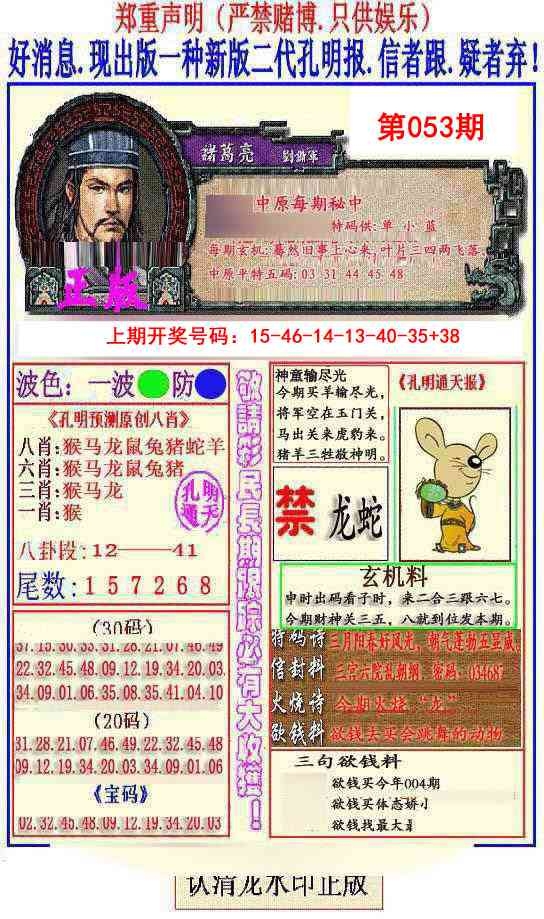 郑重声明（严禁赌博.只供娱乐）
好消息.现出版一种新版二代孔明报.信者跟.疑者弃！
第053期
諸葛亮
劉備軍
中原每期秘中
特码供:单 小 蓝
每期玄机:蓦然旧事上心来,叶片三四两飞落.
中原平特五码:03 31 44 45 48
正版
上期开奖号码：15-46-14-13-40-35+38
波色：一波 防
《孔明预测原创八肖》
八肖:猴马龙鼠兔猪蛇羊
六肖:猴马龙鼠兔猪
三肖:猴马龙
一肖:猴
孔明
通天
八卦段:12——41
尾数:157268
(30码)
37.15.30.33.31.28.21.07.46.49
22.32.45.48.09.12.19.34.20.03
34.09.01.06.35.08.35.41.04.10
(20码)
31.28.21.07.46.49.22.32.45.48
09.12.19.34.20.03.34.09.01.06
《宝码》
02.32.45.48.09.12.19.34.20.03
敬請彩民長期跟踪必有大收獲！
神童输尽光
今期买羊输尽光，
将军空在玉门关，
马出关来虎豹来。
猪羊三牲敬神明。
《孔明通天报》
禁
龙蛇
玄机料
申时出码看子时，来二合三跟六七。
今期财神关三五，八就到位发本期。
特码诗 三月阳春好风光，朝气蓬勃五显威。
信封料 三宫六院乱朝纲 密码：03468
火烧诗 今期火烧“龙”
欲钱料 欲钱去买会跳舞的动物
三句欲钱料
欲钱买今年004期
欲钱买体态娇小
欲钱找最大
认清龙水印正版